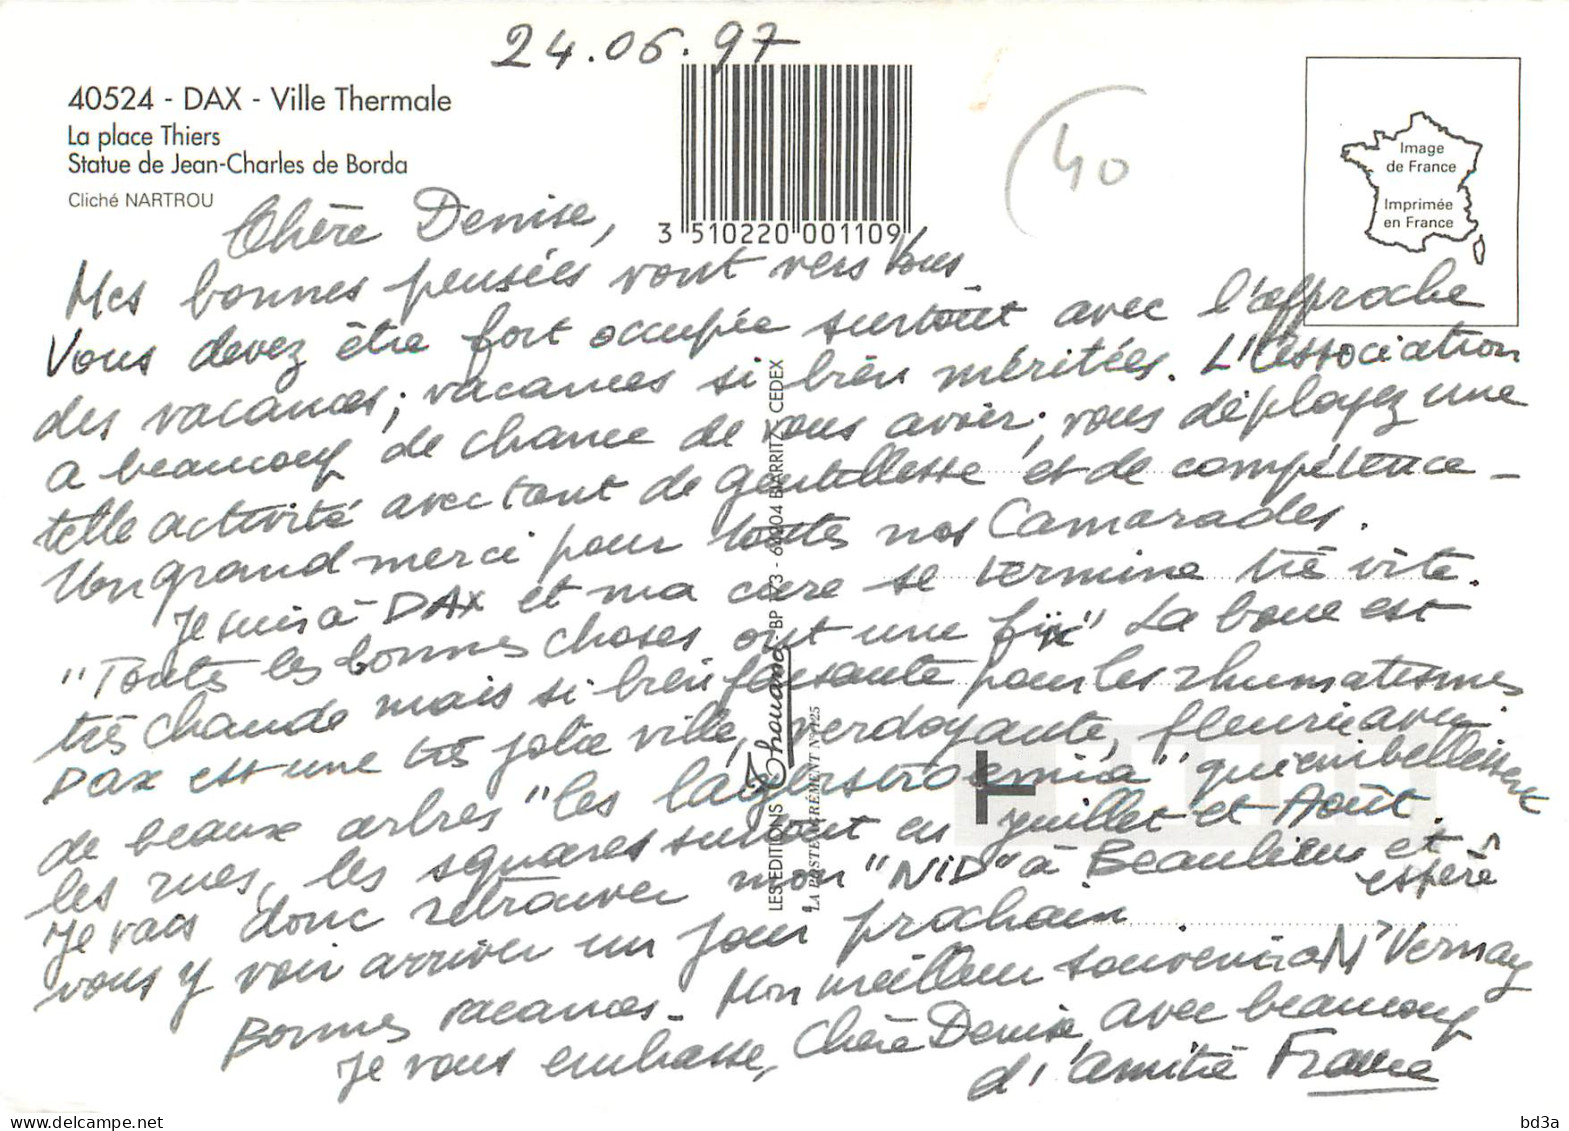 24.06.97
40524 - DAX - Ville Thermale
La place Thiers
Statue de Jean-Charles de Borda
Cliché NARTROU
3 510220 001109
40
Image
de France
Imprimée
en France
Chère Denise,
Mes bonnes pensées vont vers Vous
Vous devez être fort occupée surtout avec l'approche
des vacances; vacances si bien méritées. L'Association
a beaucoup de chance de vous avoir; vous déployez une
telle activité avec tant de gentillesse et de compétence -
Un grand merci pour toutes nos Camarades.
Je suis à DAX et ma cure se termine très vite.
"Toutes les bonnes choses ont une fin" La boue est
très chaude mais si bienfaisante pour les rhumatismes
DAX est une très jolie ville, verdoyante, fleurie avec
de beaux arbres "les lagerstroemia" qui embellissent
les rues, les squares surtout en juillet et Août.
Je vais donc retrouver mon "NiD" à Beaulieu et espère
vous y voir arriver un jour prochain
Bonnes vacances - Mon meilleur souvenir à M Vernay
Je vous embrasse, Chère Denise, avec beaucoup
d'amitié France
LES EDITIONS Thouand - BP 173 - 64204 BIARRITZ CEDEX
LA POSTE AGRÉMENT N°125
delcampe.net
bd3a